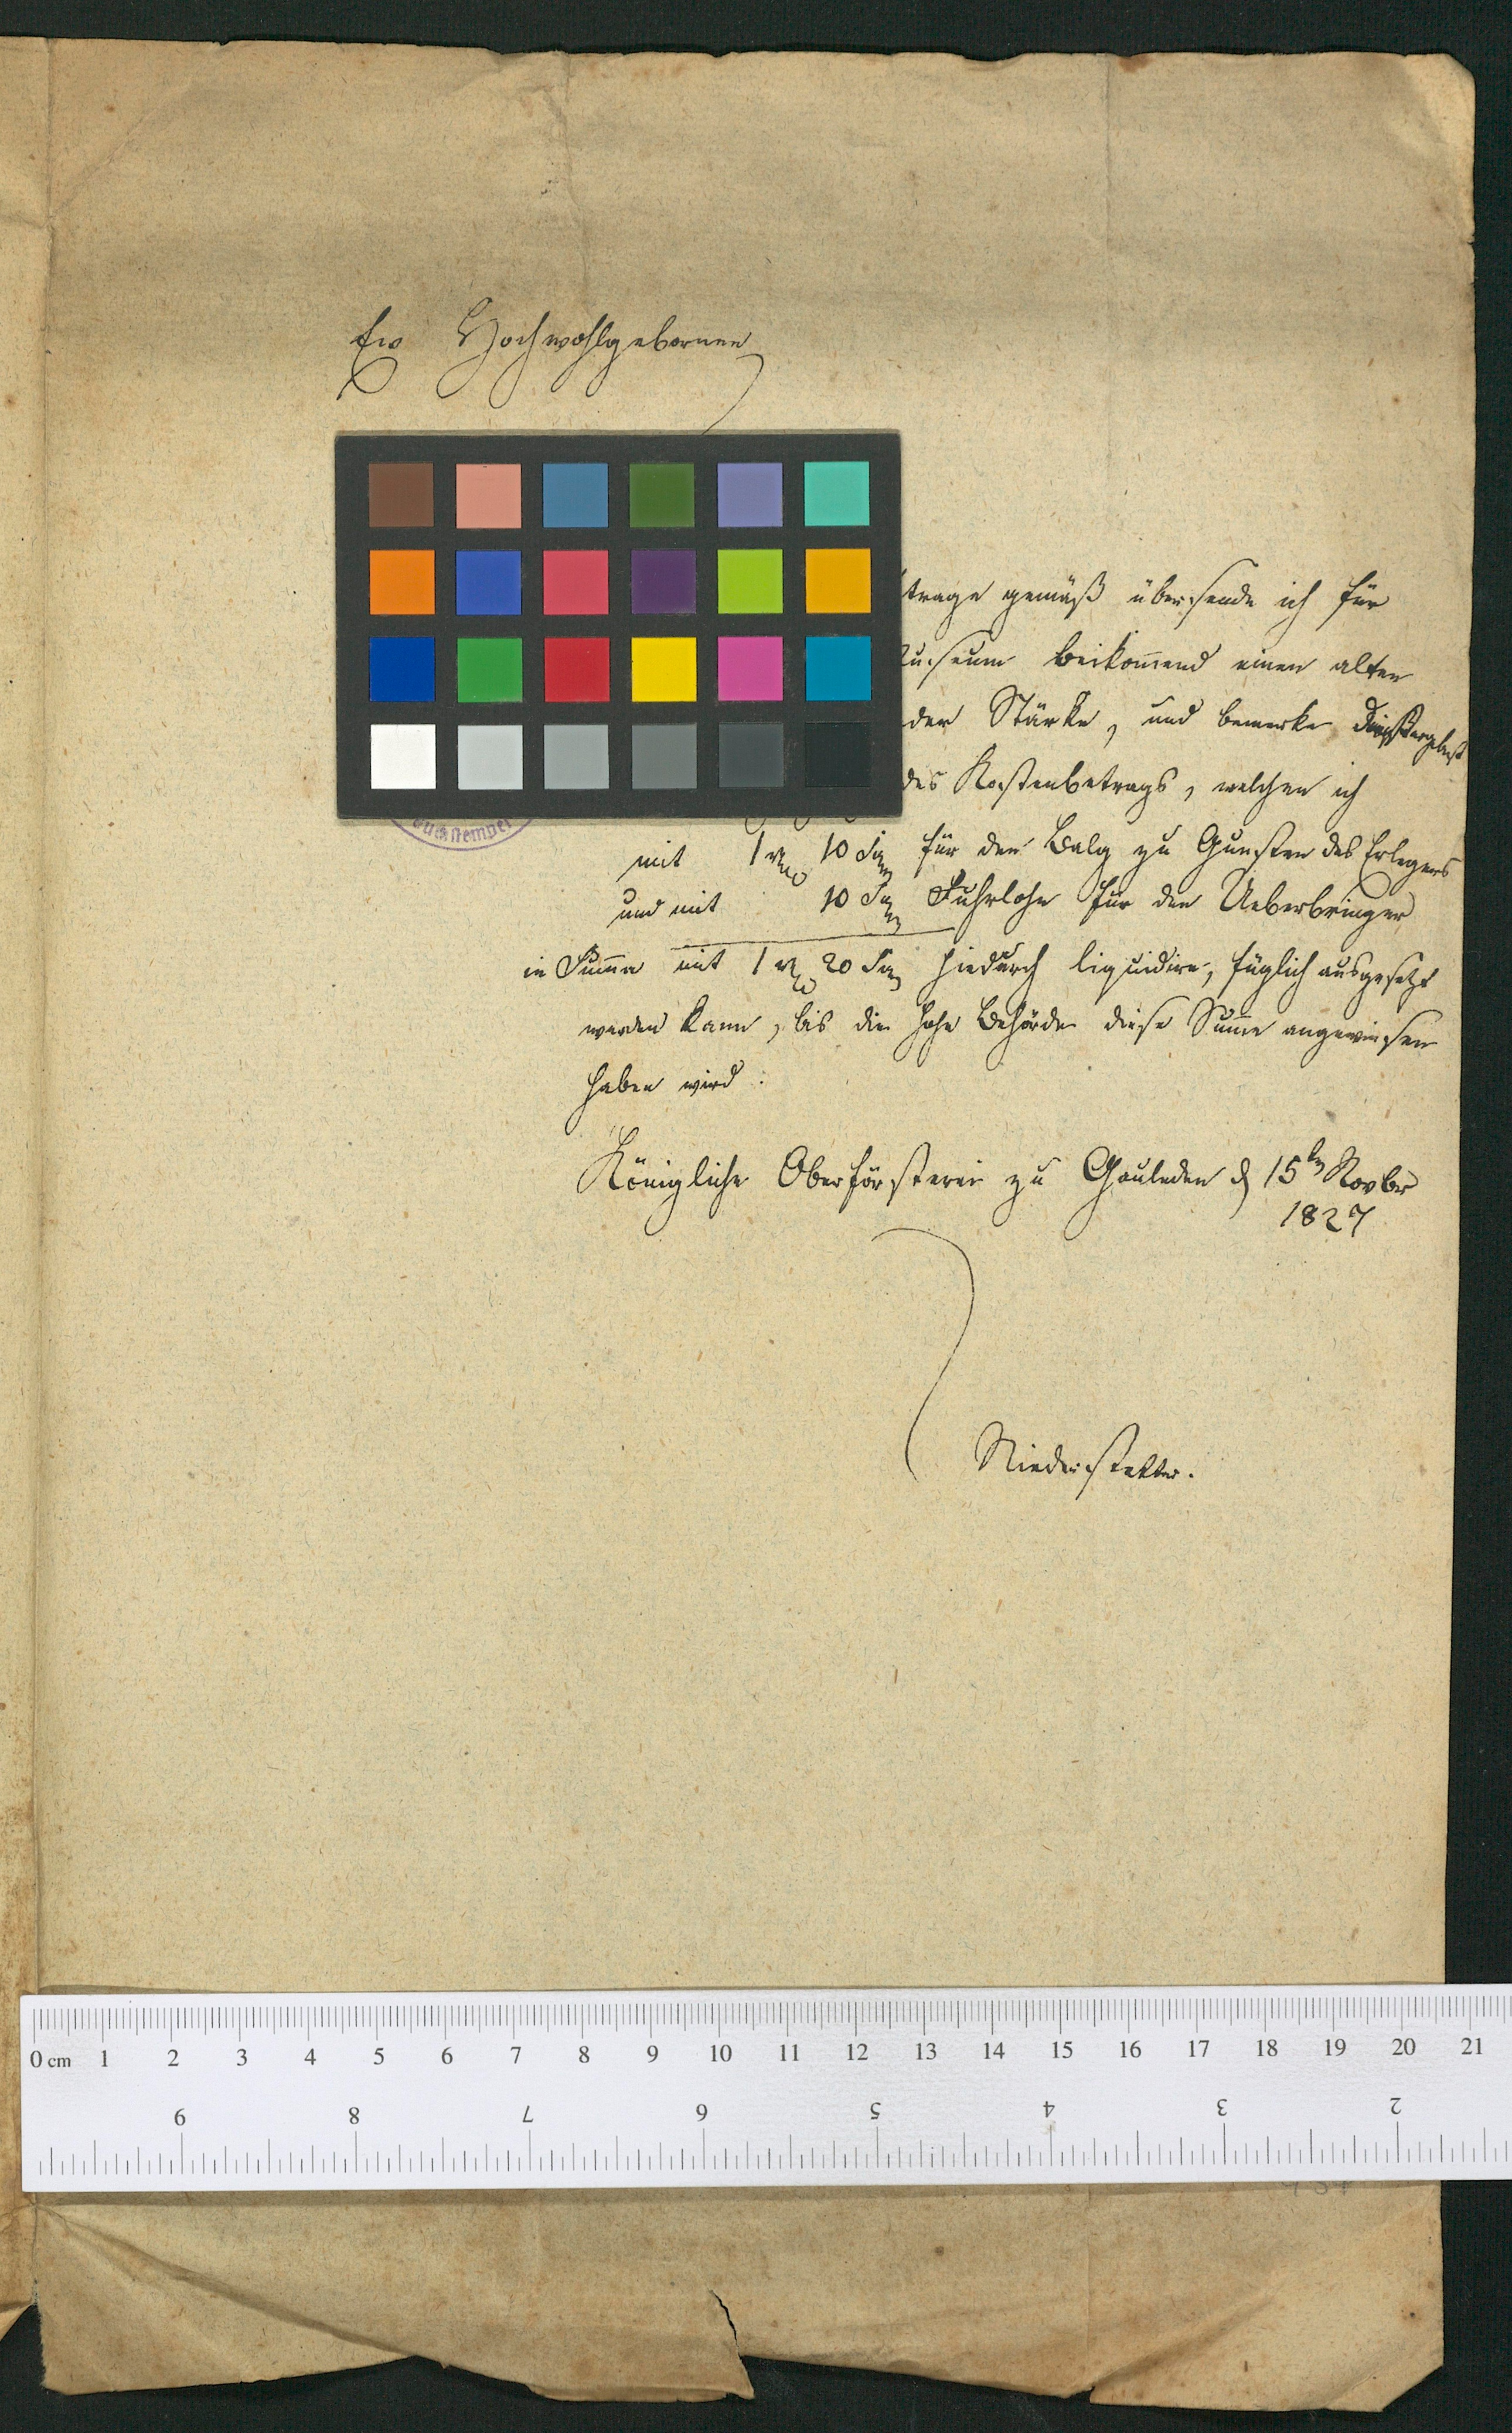 Ew Hochwohlgebornen
trage gemäß übersende ich für
useum beikom̄end einen alten
der Stärke, und bemerke
des Kostenbetrags, welchen ich
mit 1 10 Sg für den Balg zu Gunsten des Erlegers
und mit 10 Sg Fuhrlohn für den Ueberbringer
in Sum̄a mit 1 20 Sg hiedurch liquidire, füglich ausgesetzt
werden kann, bis die hohe Behörde diese Sum̄e angewiesen
haben wird.
Königliche Oberförsterei zu Gauleden d 15tn Novbr
1827
Niederstetter.
0 cm 1 2 3 4 5 6 7 8 9 10 11 12 13 14 15 16 17 18 19 20 21
9 8 7 6 5 4 3 2